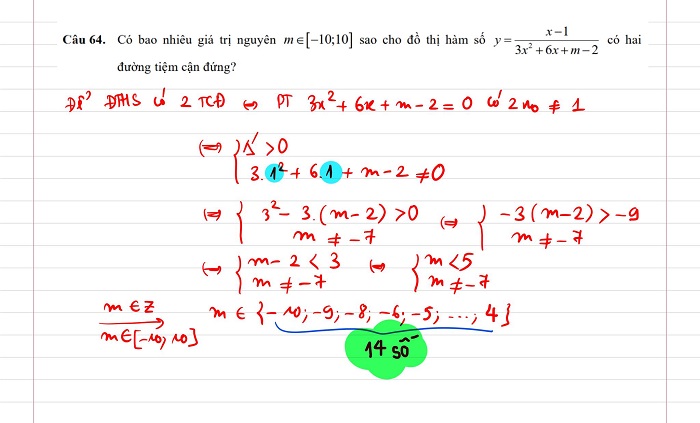 Câu 64. Có bao nhiêu giá trị nguyên m∈[−10;10] sao cho đồ thị hàm số y = (x−1)/(3x²+6x+m−2) có hai
đường tiệm cận đứng?
Để ĐTHS có 2 TCĐ ⇔ PT 3x²+6x+m−2=0 có 2 no ≠ 1
⇔ { Δ' >0
3.1²+ 6.1 + m−2 ≠0
⇔ { 3²− 3.(m−2) >0 ⇔ { −3(m−2) > −9
m ≠ −7 m ≠ −7
⇔ { m−2 < 3 ⇔ { m <5
m ≠ −7 m ≠ −7
m∈Z m ∈ {−10; −9; −8; −6; −5; ...; 4}
m∈[−10; 10]
14 số